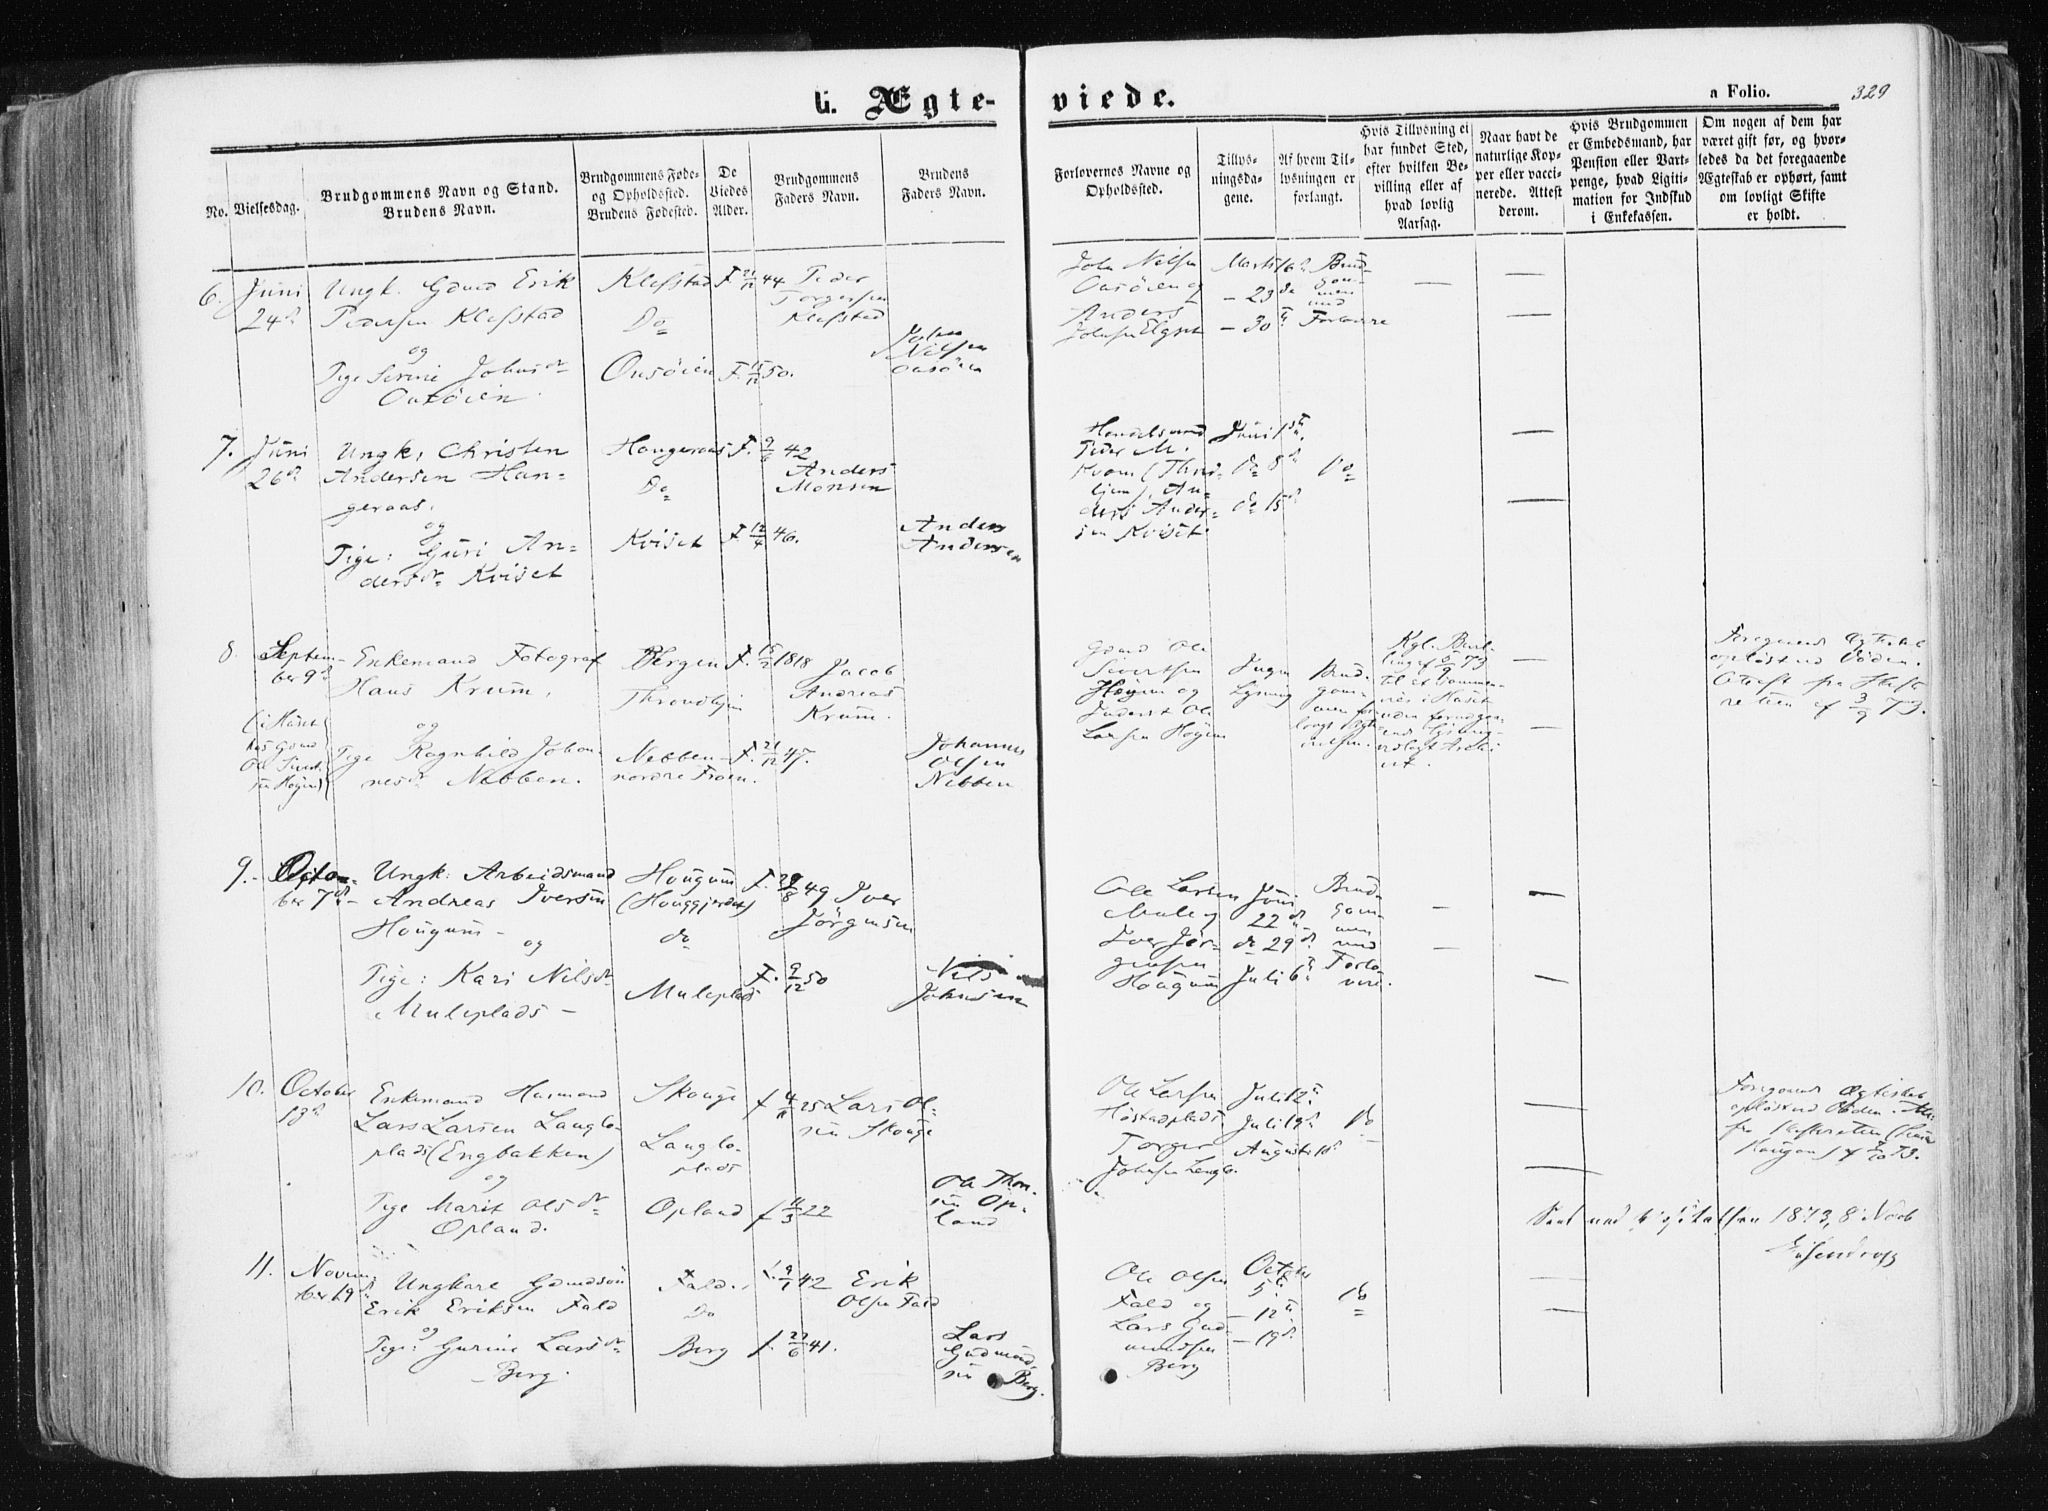 Ægte-
viede.
a Folio.
329
No.
Vielsesdag.
Brudgommens Navn og Stand.
Brudens Navn.
Brudgommens Føde-
og Opholdssted.
Brudens Fødested.
De
Viedes
Alder.
Brudgommens
Faders Navn.
Brudens
Faders Navn.
Forlovernes Navne og
Opholdssted.
Tillys-
ningsda-
gene.
Af hvem Til-
lysningen er
forlangt.
Hvis Tillysning ei
har fundet Sted,
efter hvilken Be-
villing eller af
hvad lovlig
Aarsag.
Naar havt de
naturlige Kop-
per eller vacci-
nerede. Attest
derom.
Hvis Brudgommen
er Embedsmand, har
Pension eller Vart-
penge, hvad Ligiti-
mation for Indskud
i Enkekassen.
Om nogen af dem har
været gift før, og hvor-
ledes da det foregaaende
Ægteskab er ophørt, samt
om lovligt Skifte
er holdt.
6.
Juni
24
Ungk. Gmd Erik
Pedersen Klefstad
og
Pige Serine Johns
Ousöien
Klefstad
Do
Ousöien
F. 21/12 44
F. 15/12 50.
Peder
Torgersen
Klefstad
John
Nilsen
Ousöien
John Nilsen
Ousöien og
Anders
Johnsen Elgset
Marts 16
- 23
- 30
Brud-
gom-
men
med
Forlovere
7.
Juni
26
Ungk. Christen
Andersen Han-
geraas.
og
Pige: Guri An-
ders Kviset
Hangeraas
Do
Kviset
F. 9/6 42
F. 12/4 46.
Anders
Monsen
Anders
Andersen
Handelsmand
Peder M.
Kvam (Thrond-
hjem), An-
ders Ander-
sen Kviset
Juni 1
do 8
do 15
Do
8.
Septem-
ber 9
(i Huset
hos Gmd
Ole Sivert-
sen Høgen)
Enkemand Fotograf
Hans Krum.
og
Pige Ragnhild Johan-
nes Nebben.
Bergen
Throndhjem
Nebben
nordre Froen.
F. 15/2 1818
F. 21/12 47.
Jacob
Andreas
Krum.
Johannes
Olsen
Nebben
Gmd Ole
Sivertsen
Høgen og
Larsen Høgen
Ingen
Lysning
Brud-
gom-
men
Kgl. Bevil-
ling af 5/9 73
til at sammen-
vies i Huset
uden forudgaa-
ende Lysning
Foregaaende Ægteskab
opløst ved Døden.
Attest fra Skifte-
retten af 3/9 73.
9.
Octo-
ber 7
Ungk: Arbeidsmand
Andreas Iversen
Hougum -
og
Pige: Kari Nils
Muleplads -
Hougum
(Houggjerdet)
do
Muleplads
F. 29/8 49
F. 9/12 50
Iver
Jörgensen
Nils
Johnsen
Ole Larsen
Mule og
Iver Jör-
gensen
Hougum
Juni
22
do 29
Juli 6
Brud-
gom-
men
med
Forlo-
vere.
10.
October
13
Enkemand Husmand
Lars Larsen Langlo-
plads (Engbakken)
og
Pige Marit Ols
Opland.
Skouge
Langlo-
plads
Opland
f 4/11 25
f 11/3 22
Lars Ol-
sen Skouge
Ole Thom-
sen Op-
land
Ole Larsen
Høstadplads
Torger
Johnsen Langlo.
Juli 12
Juli 19
August 10
Do
Foregaaende Ægteskab
opløst ved Døden.
fra Skifteretten
1873, 8 Novb
11.
Novem-
ber 19
Ungkarl Gmdsön
Erik Eriksen Fald
og
Pige: Gurine Lars
Berg.
Fald.
Do
Berg
f. 9/1 42
f. 27/6 41.
Erik
Olsen Fald
Lars
Gudmund-
sen Berg.
Ole Olsen
Fald og
Lars Gud-
mundsen
Berg
October
5
- 12
- 19
Do